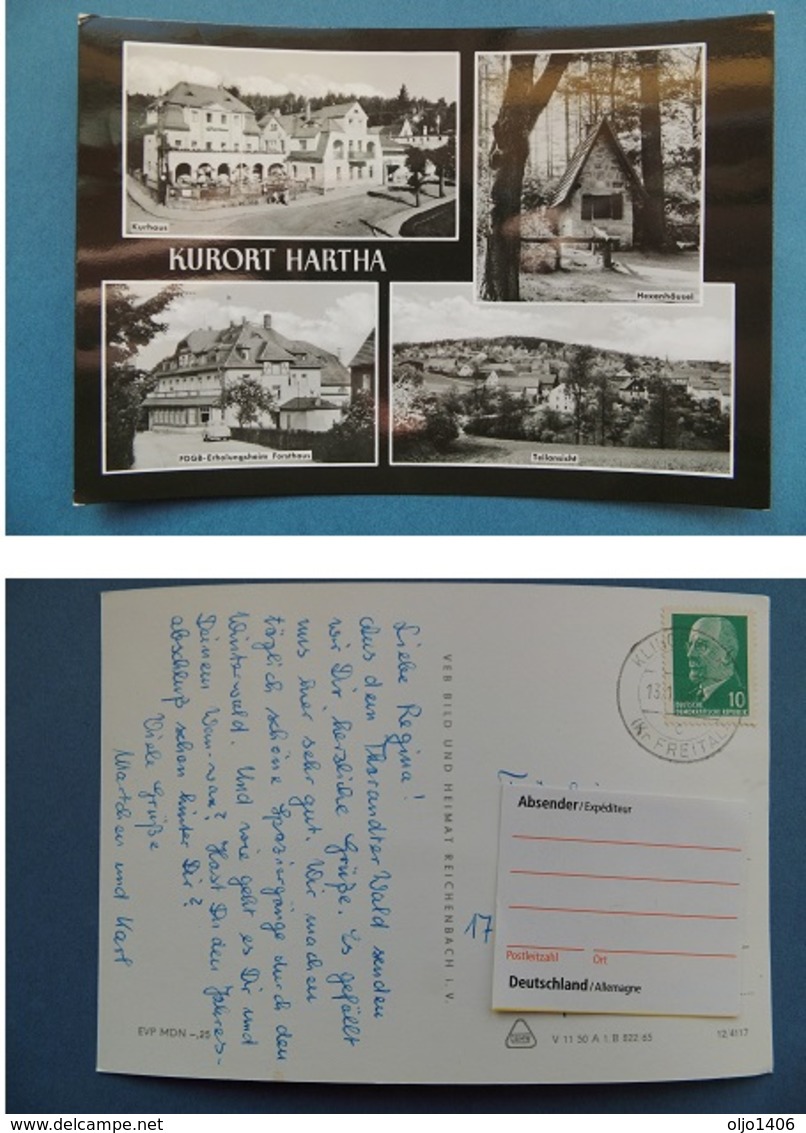 Kurhaus
KURORT HARTHA
Hexenhäusel
FDGB-Erholungsheim Forsthaus
Teilansicht
Liebe Regina!
Aus dem Tharandter Wald senden
wir Dir herzliche Grüße. Es gefällt
uns hier sehr gut. Wir machen
täglich schöne Spaziergänge durch den
Winterwald. Und wie geht es Dir und
Deinem
Hast Du den Jahres-
abschluß schon hinter Dir?
Viele Grüße
und Karl
VEB BILD UND HEIMAT REICHENBACH I. V.
EVP MDN -,25
10
DEUTSCHE
DEMOKRATISCHE REPUBLIK
(Kr. FREITAL)
17
Absender/Expéditeur
Postleitzahl Ort
Deutschland/Allemagne
V 11 50 A 1/B 822/65
12/4117
oljo1406